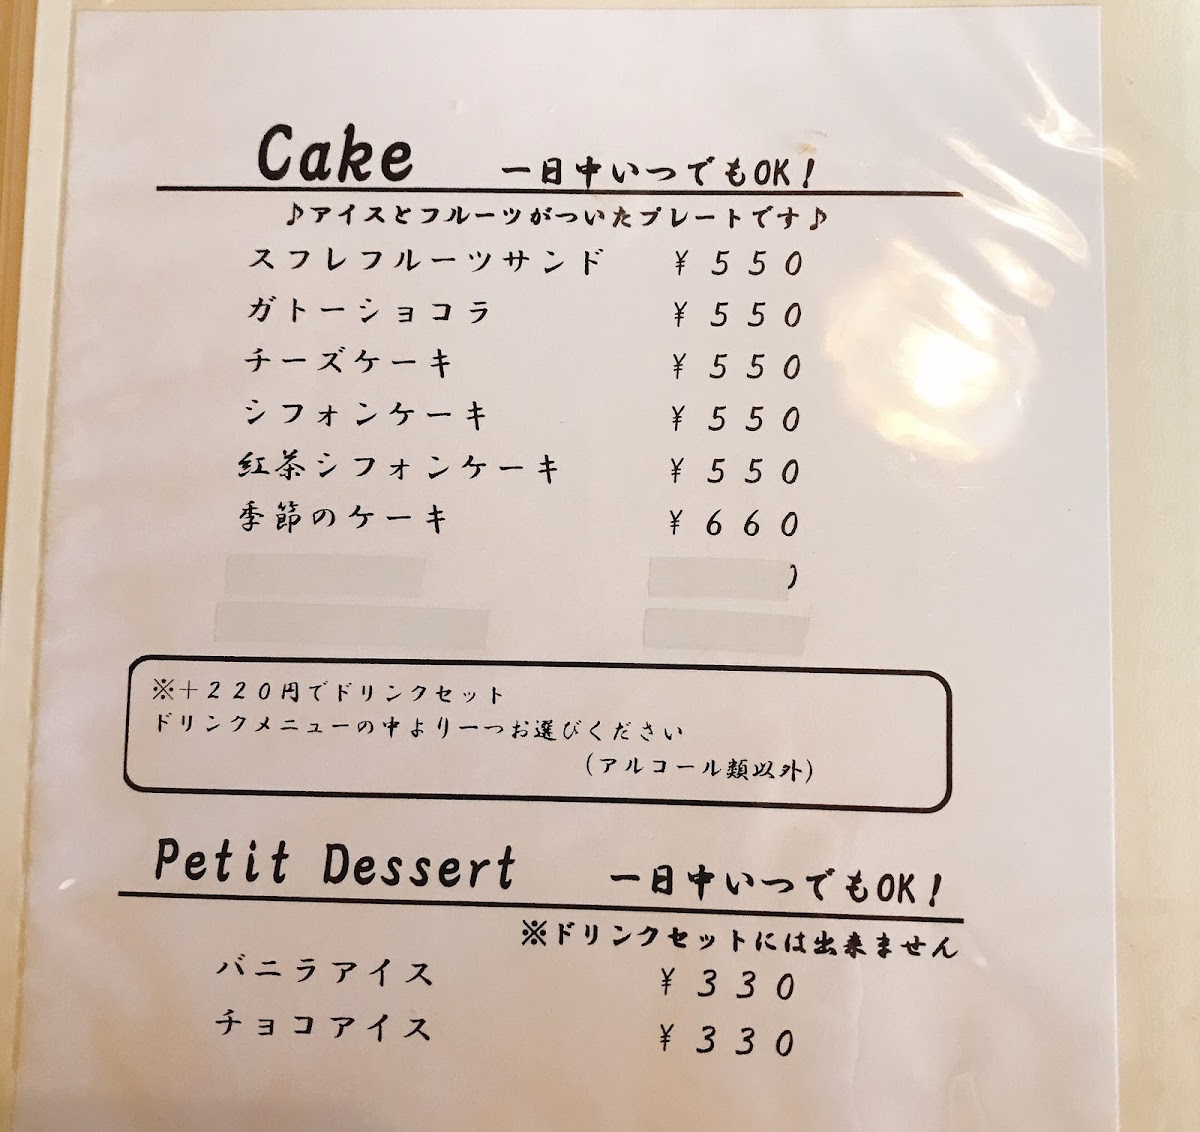 Cake 一日中いつでもOK！
♪アイスとフルーツがついたプレートです♪
スフレフルーツサンド ￥５５０
ガトーショコラ ￥５５０
チーズケーキ ￥５５０
シフォンケーキ ￥５５０
紅茶シフォンケーキ ￥５５０
季節のケーキ ￥６６０
※＋２２０円でドリンクセット
ドリンクメニューの中より一つお選びください
（アルコール類以外）
Petit Dessert 一日中いつでもOK！
※ドリンクセットには出来ません
バニラアイス ￥３３０
チョコアイス ￥３３０